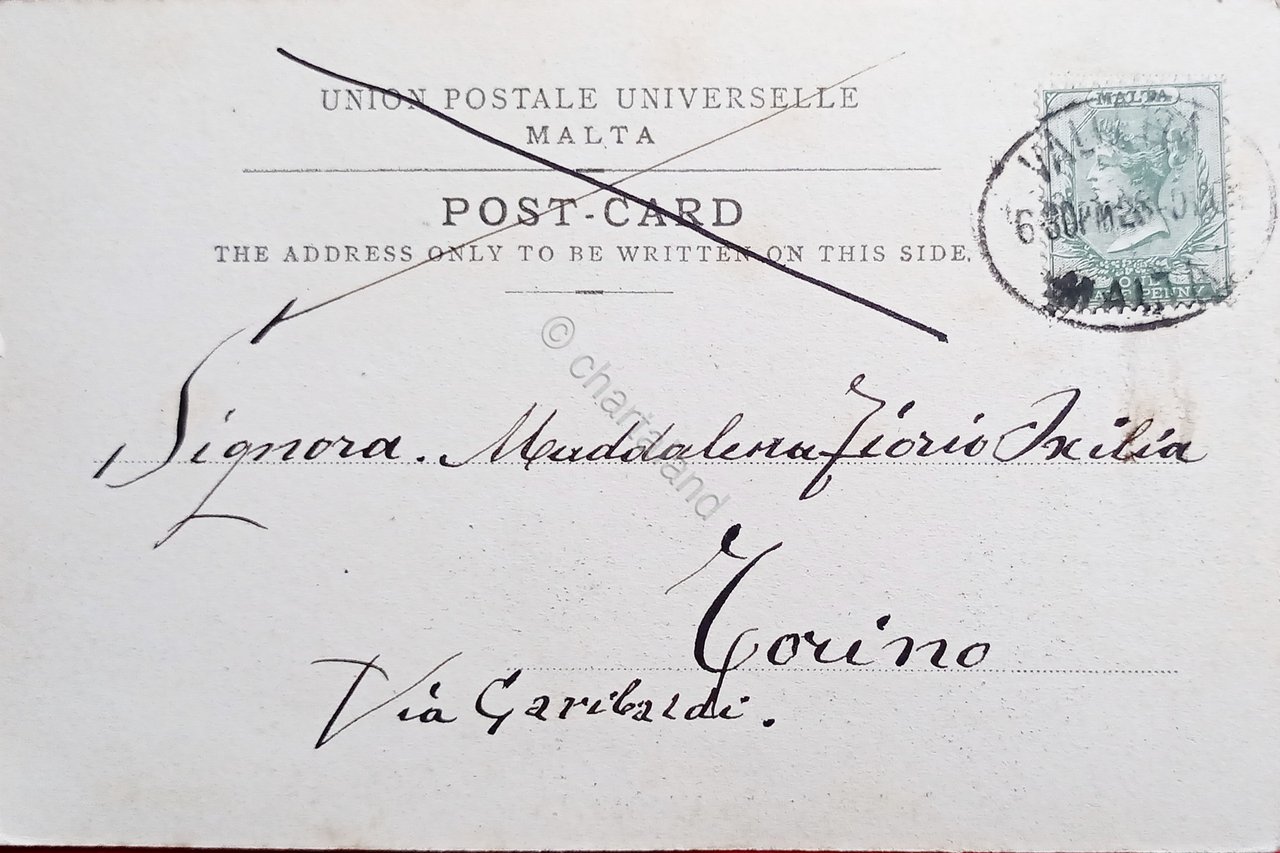 UNION POSTALE UNIVERSELLE
MALTA
POST-CARD
THE ADDRESS ONLY TO BE WRITTEN ON THIS SIDE.
MALTA
VALLETTA
6 30PM 26
MALTA
HALFPENNY
© chartaland
Signora. Maddalena Fiorio
Torino
Via Garibaldi.